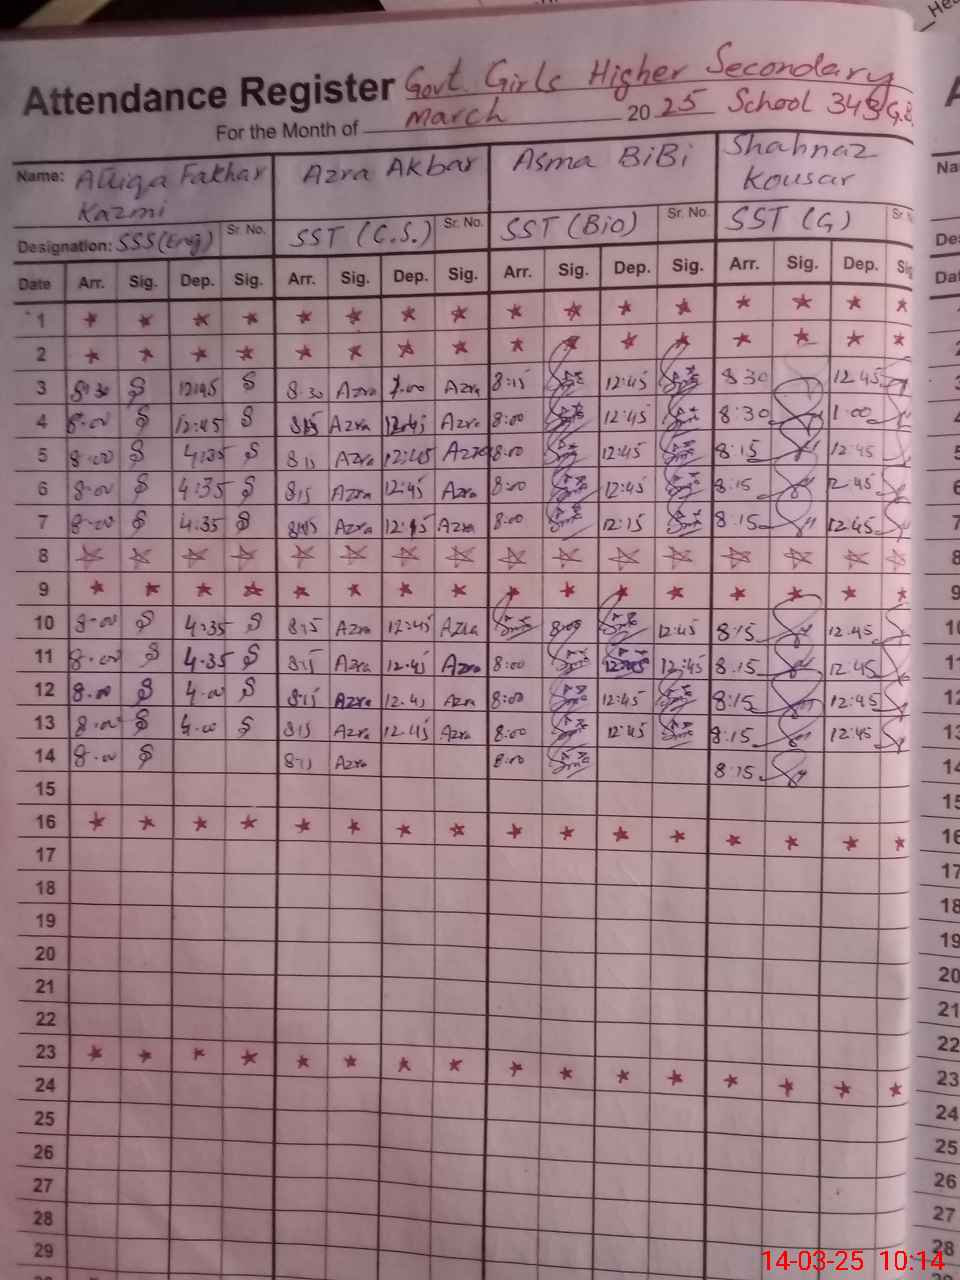 Attendance Register Govt. Girls Higher Secondary
For the Month of March 2025 School 343/G.B
Name: Attiqa Fakhar Kazmi Azra Akbar Asma BiBi Shahnaz Kousar
Designation: SSS(Eng) Sr. No. SST (C.S.) Sr. No. SST (Bio) Sr. No. SST (G)
Date Arr. Sig. Dep. Sig. Arr. Sig. Dep. Sig. Arr. Sig. Dep. Sig. Arr. Sig. Dep. Sig
1
2
3 8:30 12:45 8.30 Azra Azra 8:15 12:45 8 30 12 45
4 8:00 12:45 8:15 Azra 12:45 Azra 8:00 12:45 8:30 1:00
5 8:00 4:35 8:15 Azra 12:45 Azra 8:00 12:45 8:15 12:45
6 8:00 4:35 8:15 Azra 12:45 Azra 8:00 12:45 8:15 12:45
7 8:00 4:35 8:15 Azra 12:45 Azra 8:00 12:15 8:15 12:45
8
9
10 8:00 4:35 8:15 Azra 12:45 Azra 8:00 12:45 8:15 12.45
11 8:00 4:35 8:15 Azra 12.45 Azra 8:00 12:45 12:45 8.15 12.45
12 8.00 4.00 8:15 Azra 12.45 Azra 8:00 12:45 8:15 12:45
13 8:00 4.00 8:15 Azra 12.45 Azra 8:00 12:45 8:15 12:45
14 8.00 8:15 Azra 8:00 8:15
15
16
17
18
19
20
21
22
23
24
25
26
27
28
29
14-03-25 10:14